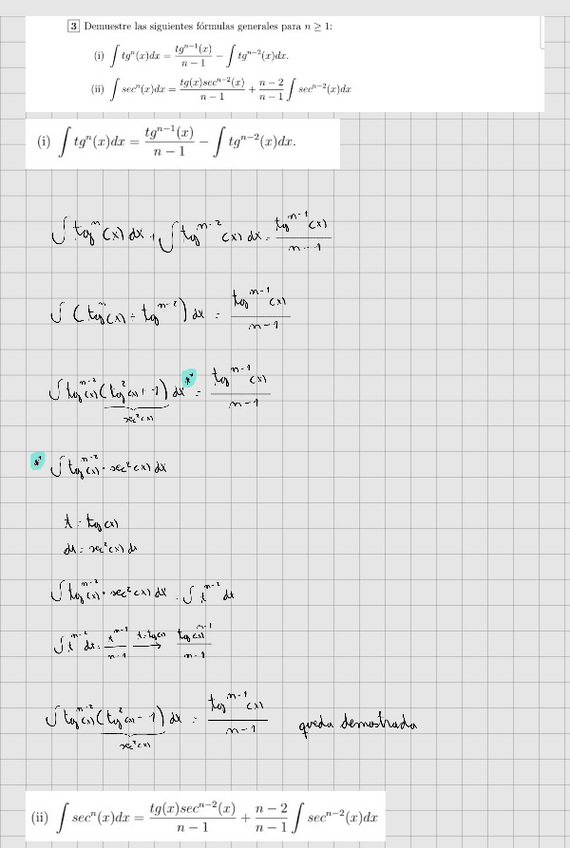 3 Demuestre las siguientes fórmulas generales para n ≥ 1:
(i) ∫ tg^n(x)dx = tg^{n−1}(x)/(n−1) − ∫ tg^{n−2}(x)dx.
(ii) ∫ sec^n(x)dx = tg(x)sec^{n−2}(x)/(n−1) + (n−2)/(n−1) ∫ sec^{n−2}(x)dx
(i) ∫ tg^n(x)dx = tg^{n−1}(x)/(n−1) − ∫ tg^{n−2}(x)dx.
∫ tg^n(x) dx + ∫ tg^{n-2}(x) dx = tg^{n-1}(x)/(n-1)
∫ (tg^n(x) + tg^{n-2}) dx = tg^{n-1}(x)/(n-1)
∫ tg^{n-2}(x) (tg^2(x) + 1) dx *1 = tg^{n-1}(x)/(n-1)
sec^2(x)
*1 ∫ tg^{n-2}(x) · sec^2(x) dx
t = tg(x)
dt = sec^2(x) dx
∫ tg^{n-2}(x) · sec^2(x) dx = ∫ t^{n-2} dt
∫ t^{n-2} dt = t^{n-1}/(n-1) t=tg(x) → tg(x)^{n-1}/(n-1)
∫ tg^{n-2}(x) (tg^2(x) - 1) dx = tg^{n-1}(x)/(n-1) queda demostrada
sec^2(x)
(ii) ∫ sec^n(x)dx = tg(x)sec^{n−2}(x)/(n−1) + (n−2)/(n−1) ∫ sec^{n−2}(x)dx